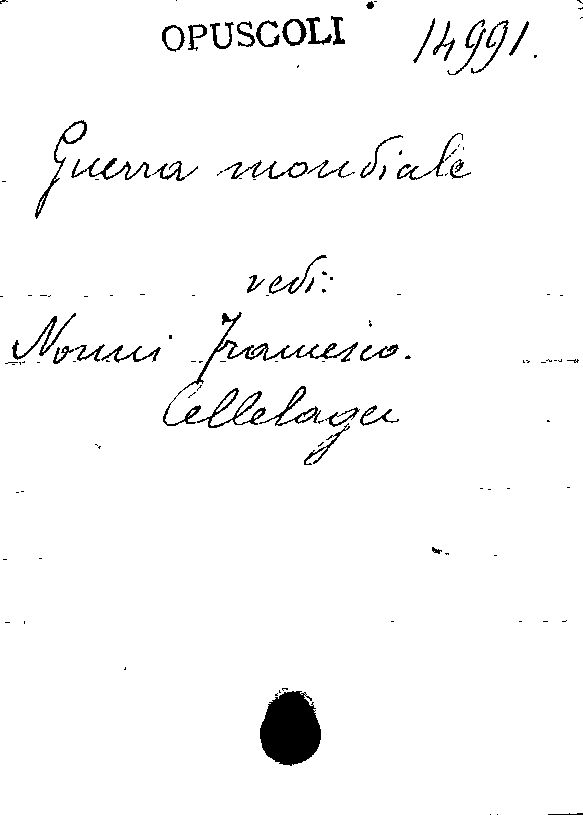 OPUSCOLI 14991.
Guerra mondiale
vedi:
Nonni Francesco.
Cellelager